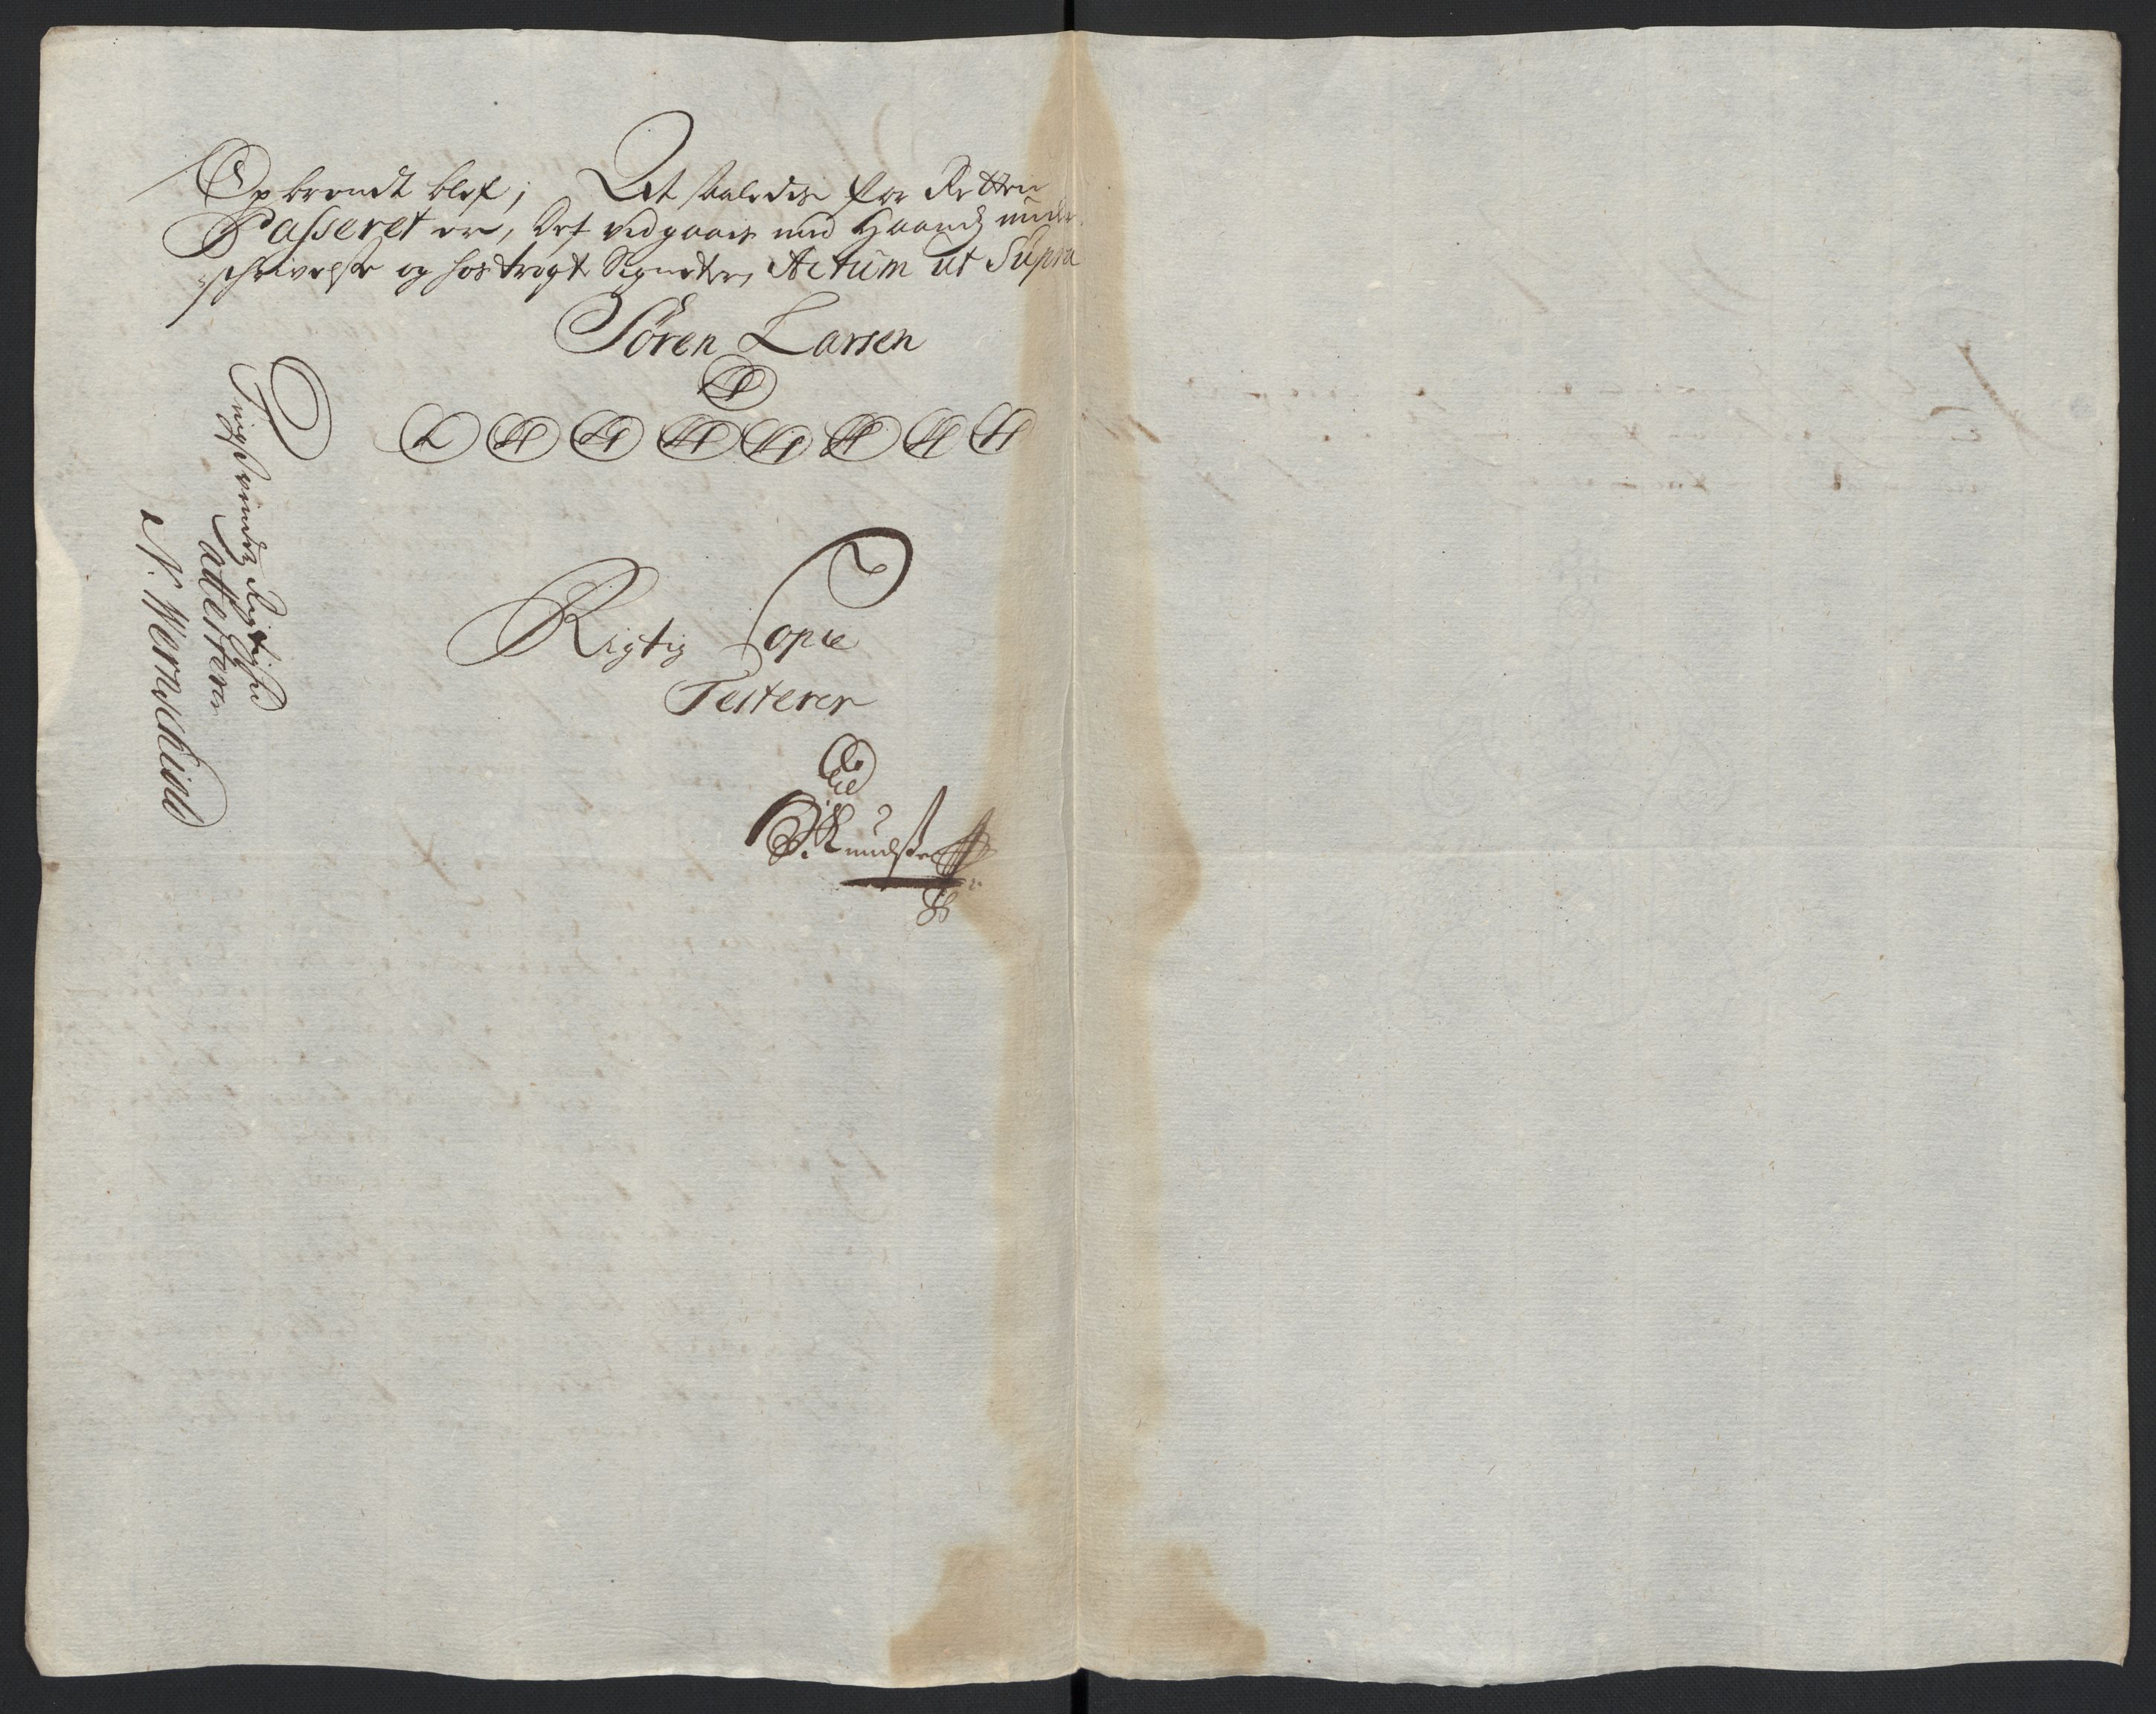 Opbrendt blef; At saaledis for Retten
Passeret er, Det vedgaais med Haands under-
schrivelse og hostrogt Signeter, Actum ut Supra
Sören Larsen
Rigtig Copie
Testerer
Knudsen
Rigtighed
attesterer
N: Wernschiold